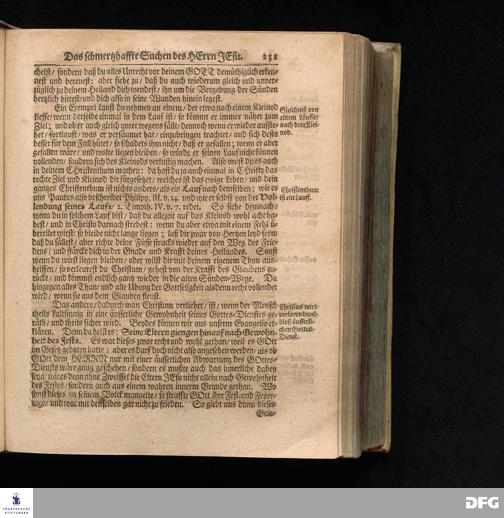 Das schmertzhaffte Suchen des HErrn JEsu. 231
chelst/ sondern daß du alles Unrecht vor deinem GOTT demüthiglich erken-
nest und bereuest: aber siehe zu/ daß du auch wiederum gleich und unver-
züglich zu deinem Heiland dich wendest/ ihn um die Vergebung der Sünden
hertzlich bittest/ und dich also in seine Wunden hinein legest.
Ein Exempel kanst du nehmen an einem/ der etwa nach einem Kleinod
lieffe/ wenn derselbe einmal in dem Lauf ist/ so kömmt er immer näher zum
Ziel; und ob er auch gleich unterwegens fällt/ dennoch wenn er wieder aufste-
het/ fortläufft/ was er versäumet hat/ einzubringen trachtet/ und sich desto
besser für dem Fall hütet/ so schadets ihm nicht/ daß er gefallen; wenn er aber
gefallen wäre/ und wolte liegen bleiben/ so würde er seinen Lauf nicht können
vollenden/ sondern sich des Kleinods verlustig machen. Also must du es auch
in deinem Christenthum machen: da hast du ja auch einmal in Christo das
rechte Ziel und Kleinod dir fürgesetzet/ welches ist das ewige Leben/ und dein
ganges Christenthum ist nichts anders/ als ein Lauf nach demselben; wie es
uns Paulus also beschreibet Philipp. III. v. 14. und wie er selbst von der Vol-
lendung seines Laufs/ 2. Timoth. IV. v. 7. redet. So siehe demnach/
wenn du in solchem Lauf bist/ daß du allezeit auf das Kleinod wohl acht ha-
best/ und in Christo darnach strebest: wenn du aber etwa mit einem Fehl ü-
bereilet wirst/ so bleibe nicht lange liegen; laß dir zwar von Hertzen leyd seyn/
daß du fällest/ aber richte deine Füsse stracks wieder auf den Weg des Frie-
dens/ und stärcke dich in der Gnade und Krafft deines Heilandes. Sonst
wenn du wirst liegen bleiben/ oder wilst dir mit deinem eigenem Thun aus-
helffen/ so verleurest du Christum/ gehest von der Krafft des Glaubens zu-
rücke/ und kömmst endlich gang wieder in die alten Sünden-Wege. Da
hingegen alles Thun/ und alle Übung der Gottseligkeit als denn recht vollendet
wird/ wenn sie aus dem Glauben fleust.
Das andere/ dadurch man Christum verliehret/ ist/ wenn der Mensch
theils kaltsinnig in eine äusserliche Gewohnheit seines Gottes-Dienstes ge-
räth/ und theils sicher wird. Beydes können wir aus unserm Evangelio er-
klären. Denn da heist es: Seine Eltern giengen hinauf nach Gewohn-
heit des Fests. Es war dieses zwar recht und wohl gethan/ weil es GOtt
im Gesetz geboten hatte; aber es darf doch nicht also angesehen werden/ als ob
GOtt dem HERRN nur mit einer äusserlichen Abwartung des GOttes-
Diensts wäre gnug geschehen/ sondern es muste auch das innerliche dabey
seyn/ wie es denn ohne Zweiffel die Eltern JEsu nicht allein nach Gewohnheit
des Festes/ sondern auch aus einem guten innern Grunde gethan. Wo
sonst dieses an seinem Volck mangelte/ so straffte GOtt ihre Fest- und Feyer-
tage/ und war mit denselben gar nicht zu frieden. So giebt uns dann dieses
Gele-
Gleichniß von
einem Läuffer
nach dem Klei-
nod.
Christenthum
ist ein Lauff.
Christus wird
verloren durch
bloß äusserli-
chen Gottes-
Dienst.
FRANCKESCHE
STIFTUNGEN
DFG